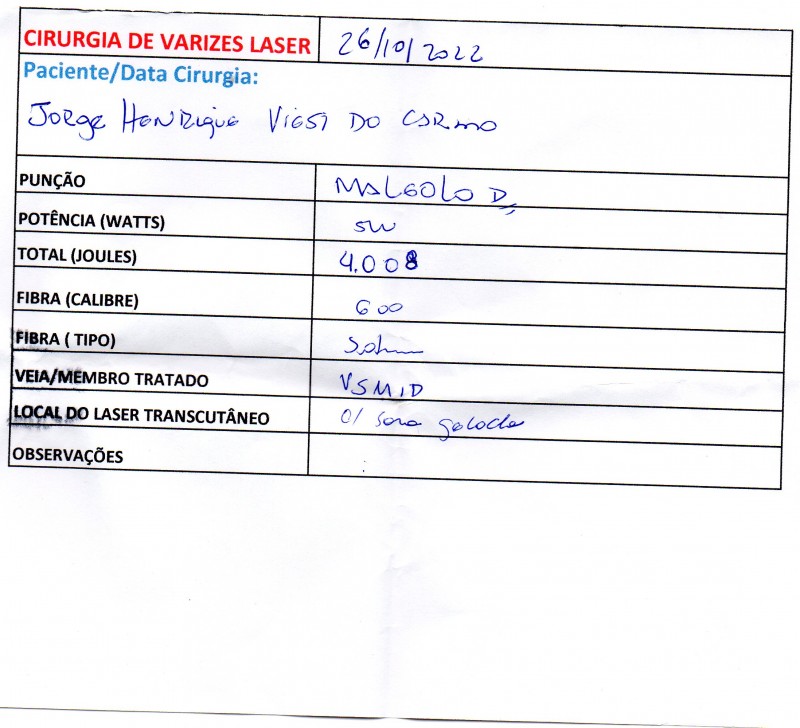 CIRURGIA DE VARIZES LASER 26/10/2022
Paciente/Data Cirurgia:
Jorge Henrique Viesi do Carmo
PUNÇÃO MALEOLO D
POTÊNCIA (WATTS) 5W
TOTAL (JOULES) 4.008
FIBRA (CALIBRE) 600
FIBRA ( TIPO)
VEIA/MEMBRO TRATADO VSMID
LOCAL DO LASER TRANSCUTÂNEO
OBSERVAÇÕES